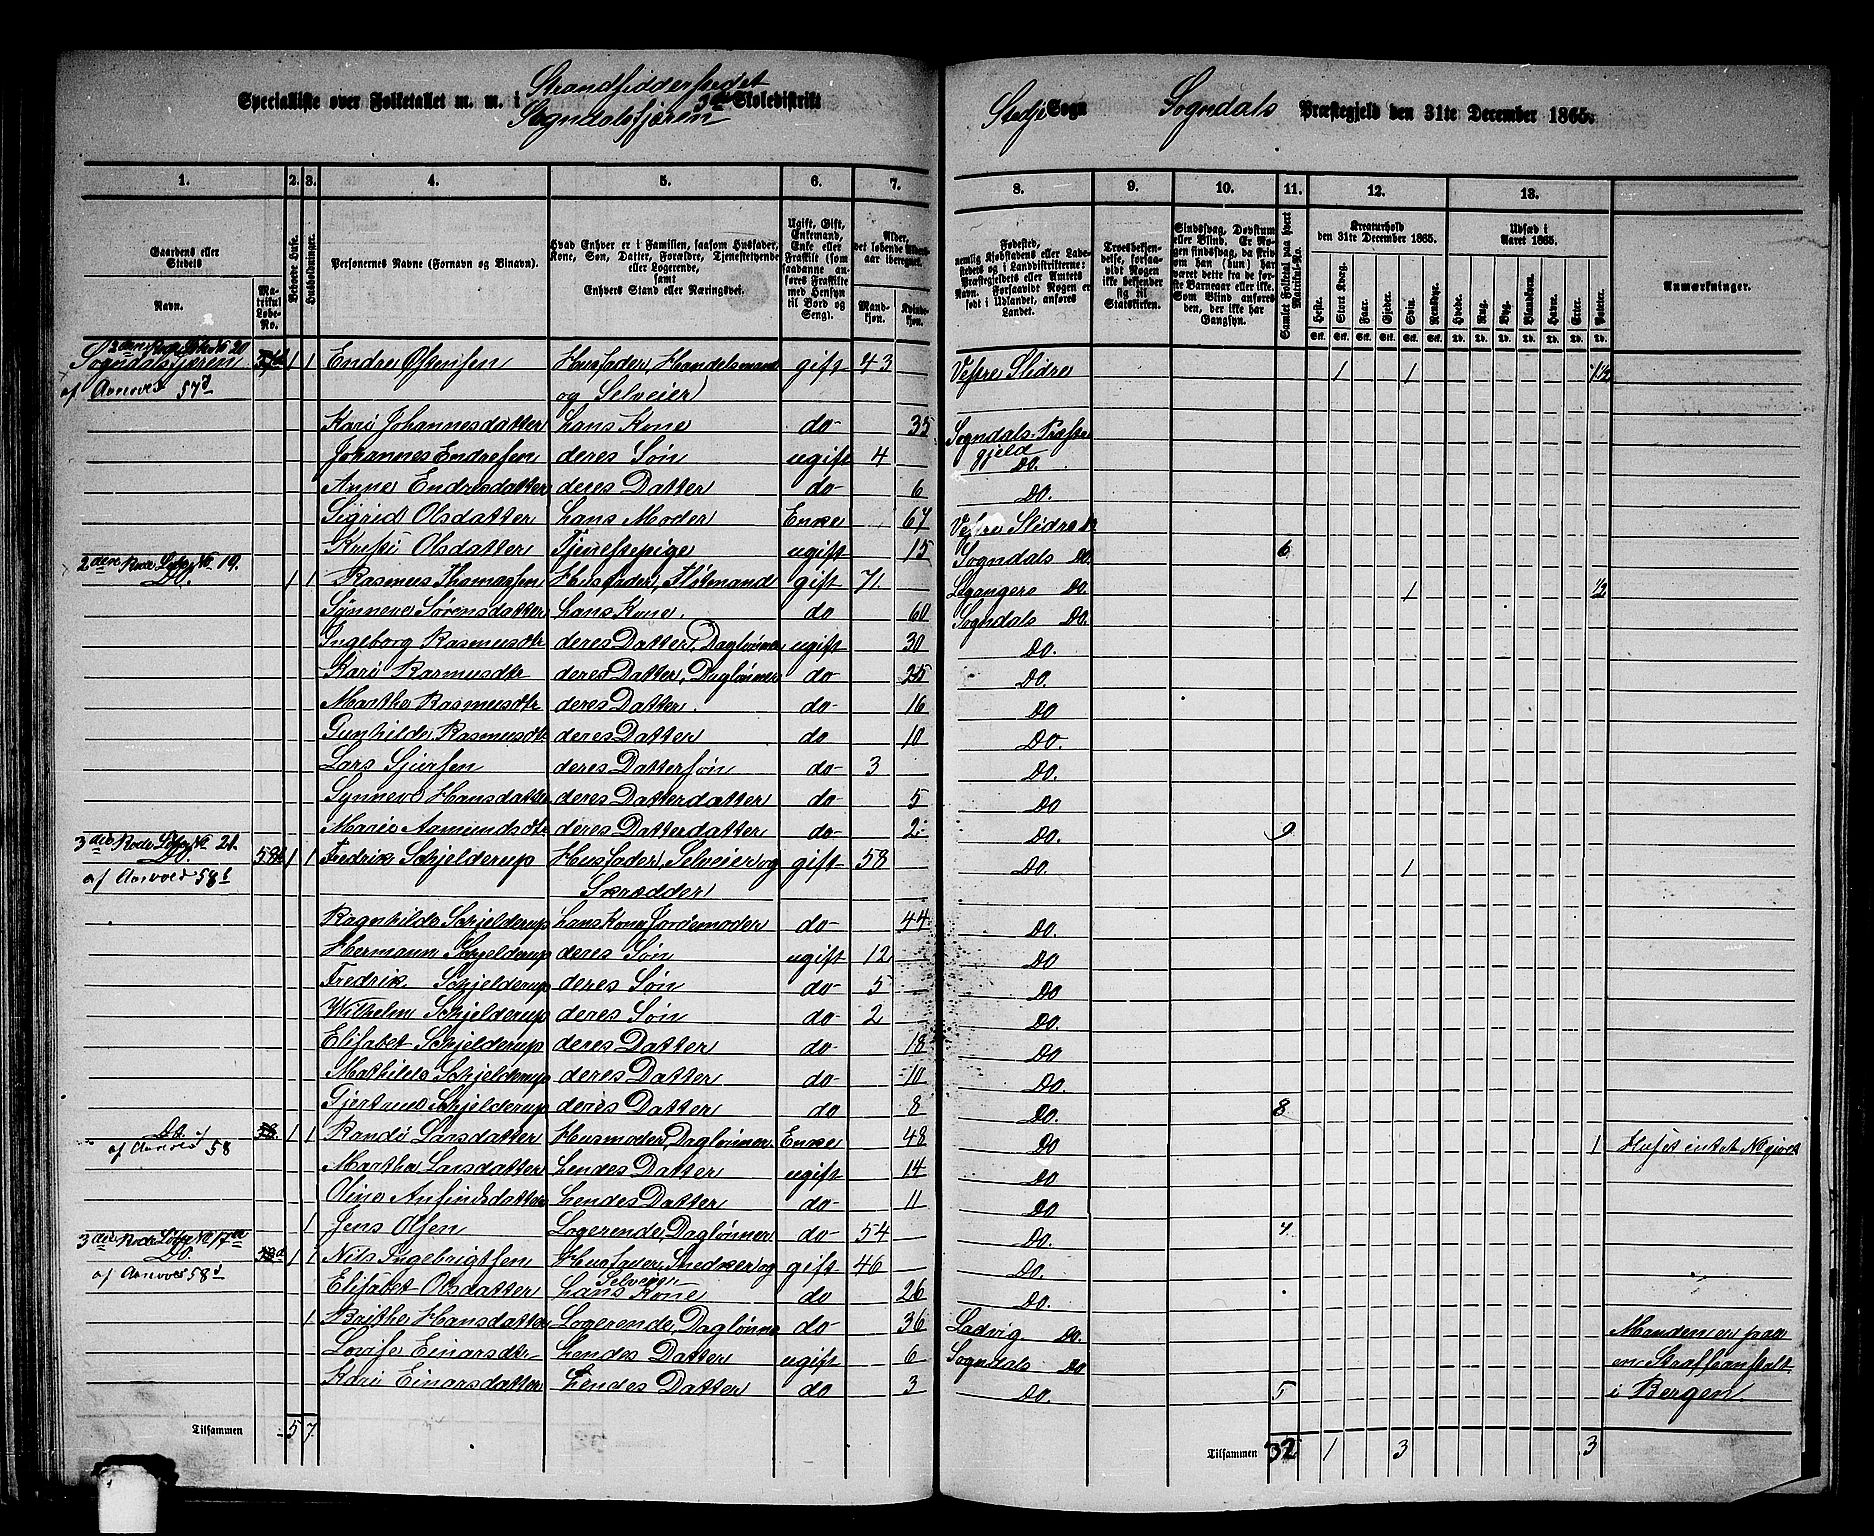 Specialliste over Folketallet m. m. i Strandsidderstedet Sogndalsfjæren 3die Skoledistrikt
Stedje Sogn Sogndals Præstegjeld den 31te December 1865.
1. 2. 3. 4. 5. 6. 7. 8. 9. 10. 11. 12. 13.
Gaardens eller Stedets
Navn. Matrikul Løbe-No.
Beboede Huse.
Husholdninger.
Personernes Navne (Fornavn og Binavn).
Hvad Enhver er i Familien, saasom Husfader, Kone, Søn, Datter, Forældre, Tjenestetyende eller Logerende, samt Enhvers Stand eller Næringsvei.
Ugift, Gift, Enkemand, Enke eller Fraskilt (som saadanne anføres Fraskilte med Hensyn til Bord og Seng).
Alder, det løbende Alders-aar iberegnet.
Mandkjøn. Kvindekjøn.
Fødested, nemlig Kjøbstadens eller Ladestedets og i Landdistrikterne: Præstegjeldets eller Amtets Navn. Forsaavidt Nogen er født i Udlandet, anføres Landet.
Troesbekjendelse, forsaavidt Nogen ikke bekjender sig til Statskirken.
Sindssvag, Døvstum eller Blind. Er Nogen sindssvag, da skrives om han (hun) har været dette fra første Barneaar eller ikke. Som Blind anføres den, der ikke har Gangsyn.
Samlet Folketal paa hvert Matrikul-No.
Kreaturhold den 31te December 1865.
Heste. Stort Kvæg. Faar. Gjeder. Svin. Rensdyr.
Udsæd i Aaret 1865.
Hvede. Rug. Byg. Blandkorn. Havre. Erter. Poteter.
Anmærkninger.
2den Rode Løbe No 20
Sogndalsfjæren 1 1 Endre Østensen Husfader, Handelsmand gift 43 Vestre Slidre 1 1 1½
af Aarvold 57d og Selveier
Kari Johannesdatter hans Kone do 35 Sogndals Præste
gjeld
Johannes Endresen deres Søn ugift 4 Do.
Anne Endresdatter deres Datter do 6 Do.
Sigrid Olsdatter hans Moder Enke 67 Vestre Slidre
Kresti Olsdatter Tjenestepige ugift 15 Sogndals Do. 6
2den Rode Løbe No 19.
Do. 1 1 Rasmus Thomassen Husfader, Flötmand gift 71 Leganger Do. 1 ½
Synneve Sørensdatter hans Kone. do 60 Sogndals Do.
Ingeborg Rasmusdtr deres Datter, Daglønner ugift 30 Do.
Kari Rasmusdtr deres Datter, Daglønner do 25 Do.
Martha Rasmusdtr deres Datter. do 16 Do
Gunhilde Rasmusdtr deres Datter do 10 Do.
Lars Sjursen deres Dattersøn do 3 Do.
Synneve Hansdatter deres Datterdatter do 5 Do
Marie Asmundsdtr deres Datterdatter do 2 Do. 9
3die Rode Løbe No 21.
Do. 58 1 1 Fredrik Schjelderup Husfader, Selveier og gift 58 Do. 1
af Aarvold 58 Skrædder
Ragnhilde Schjelderup hans Kone Jordemoder do 44 Do.
Hermann Schjelderup deres Søn ugift 12 Do
Fredrik Schjelderup deres Søn do 5 Do
Wilhelm Schjelderup deres Søn do 2 Do.
Elisabet Schjelderup deres Datter do 18 Do
Mathilde Schjelderup deres Datter do 10 Do.
Gjertrud Schjelderup deres Datter do 8 Do. 8
Do. 1 1 Randi Larsdatter Husmoder, Daglønner Enke 48 Do 1 Huset intet No givet
af Aarvold 58
Martha Larsdatter hendes Datter ugift 14 Do.
Oline Anfindsdatter hendes Datter do 11 Do
1 Jens Olsen Logerende, Daglønner do 54 Do. 4
3die Rode Løbe No 17
Do. 1 1 Nils Ingebrigtsen Husfader, Snedker og gift 46 Do.
af Aarvold 58 Selveier
Elisabet Olsdatter hans Kone do 26 Do.
1 Brithe Hansdatter Logerende, Daglønner do 36 Ladvig Do. Manden er paa
Lovise Einarsdtr hendes Datter ugift 6 Sogndals Do en Straffeanstalt
Kari Einarsdatter hendes Datter do 3 Do. 5 i Bergen
Tilsammen 5 7 Tilsammen 32 1 3 3